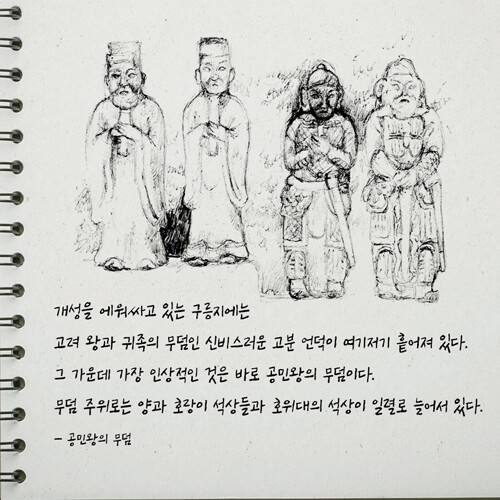 개성을 에워싸고 있는 구릉지에는
고려 왕과 귀족의 무덤인 신비스러운 고분 언덕이 여기저기 흩어져 있다.
그 가운데 가장 인상적인 것은 바로 공민왕의 무덤이다.
무덤 주위로는 양과 호랑이 석상들과 호위대의 석상이 일렬로 늘어서 있다.
- 공민왕의 무덤